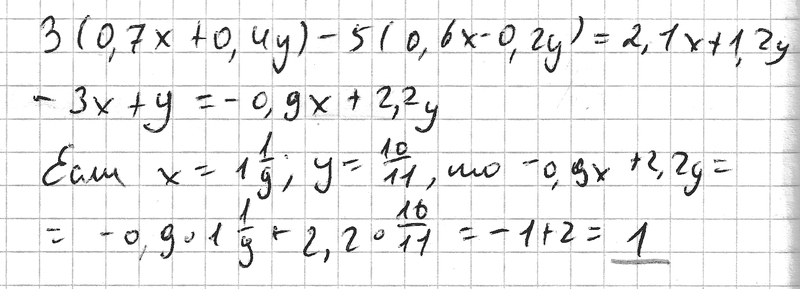 3(0,7x+0,4y)-5(0,6x-0,2y)=2,1x+1,2y
-3x+y=-0,9x+2,2y
Если x=1 1/9; y=10/11, то -0,9x+2,2y=
= -0,9·1 1/9+2,2·10/11=-1+2=1